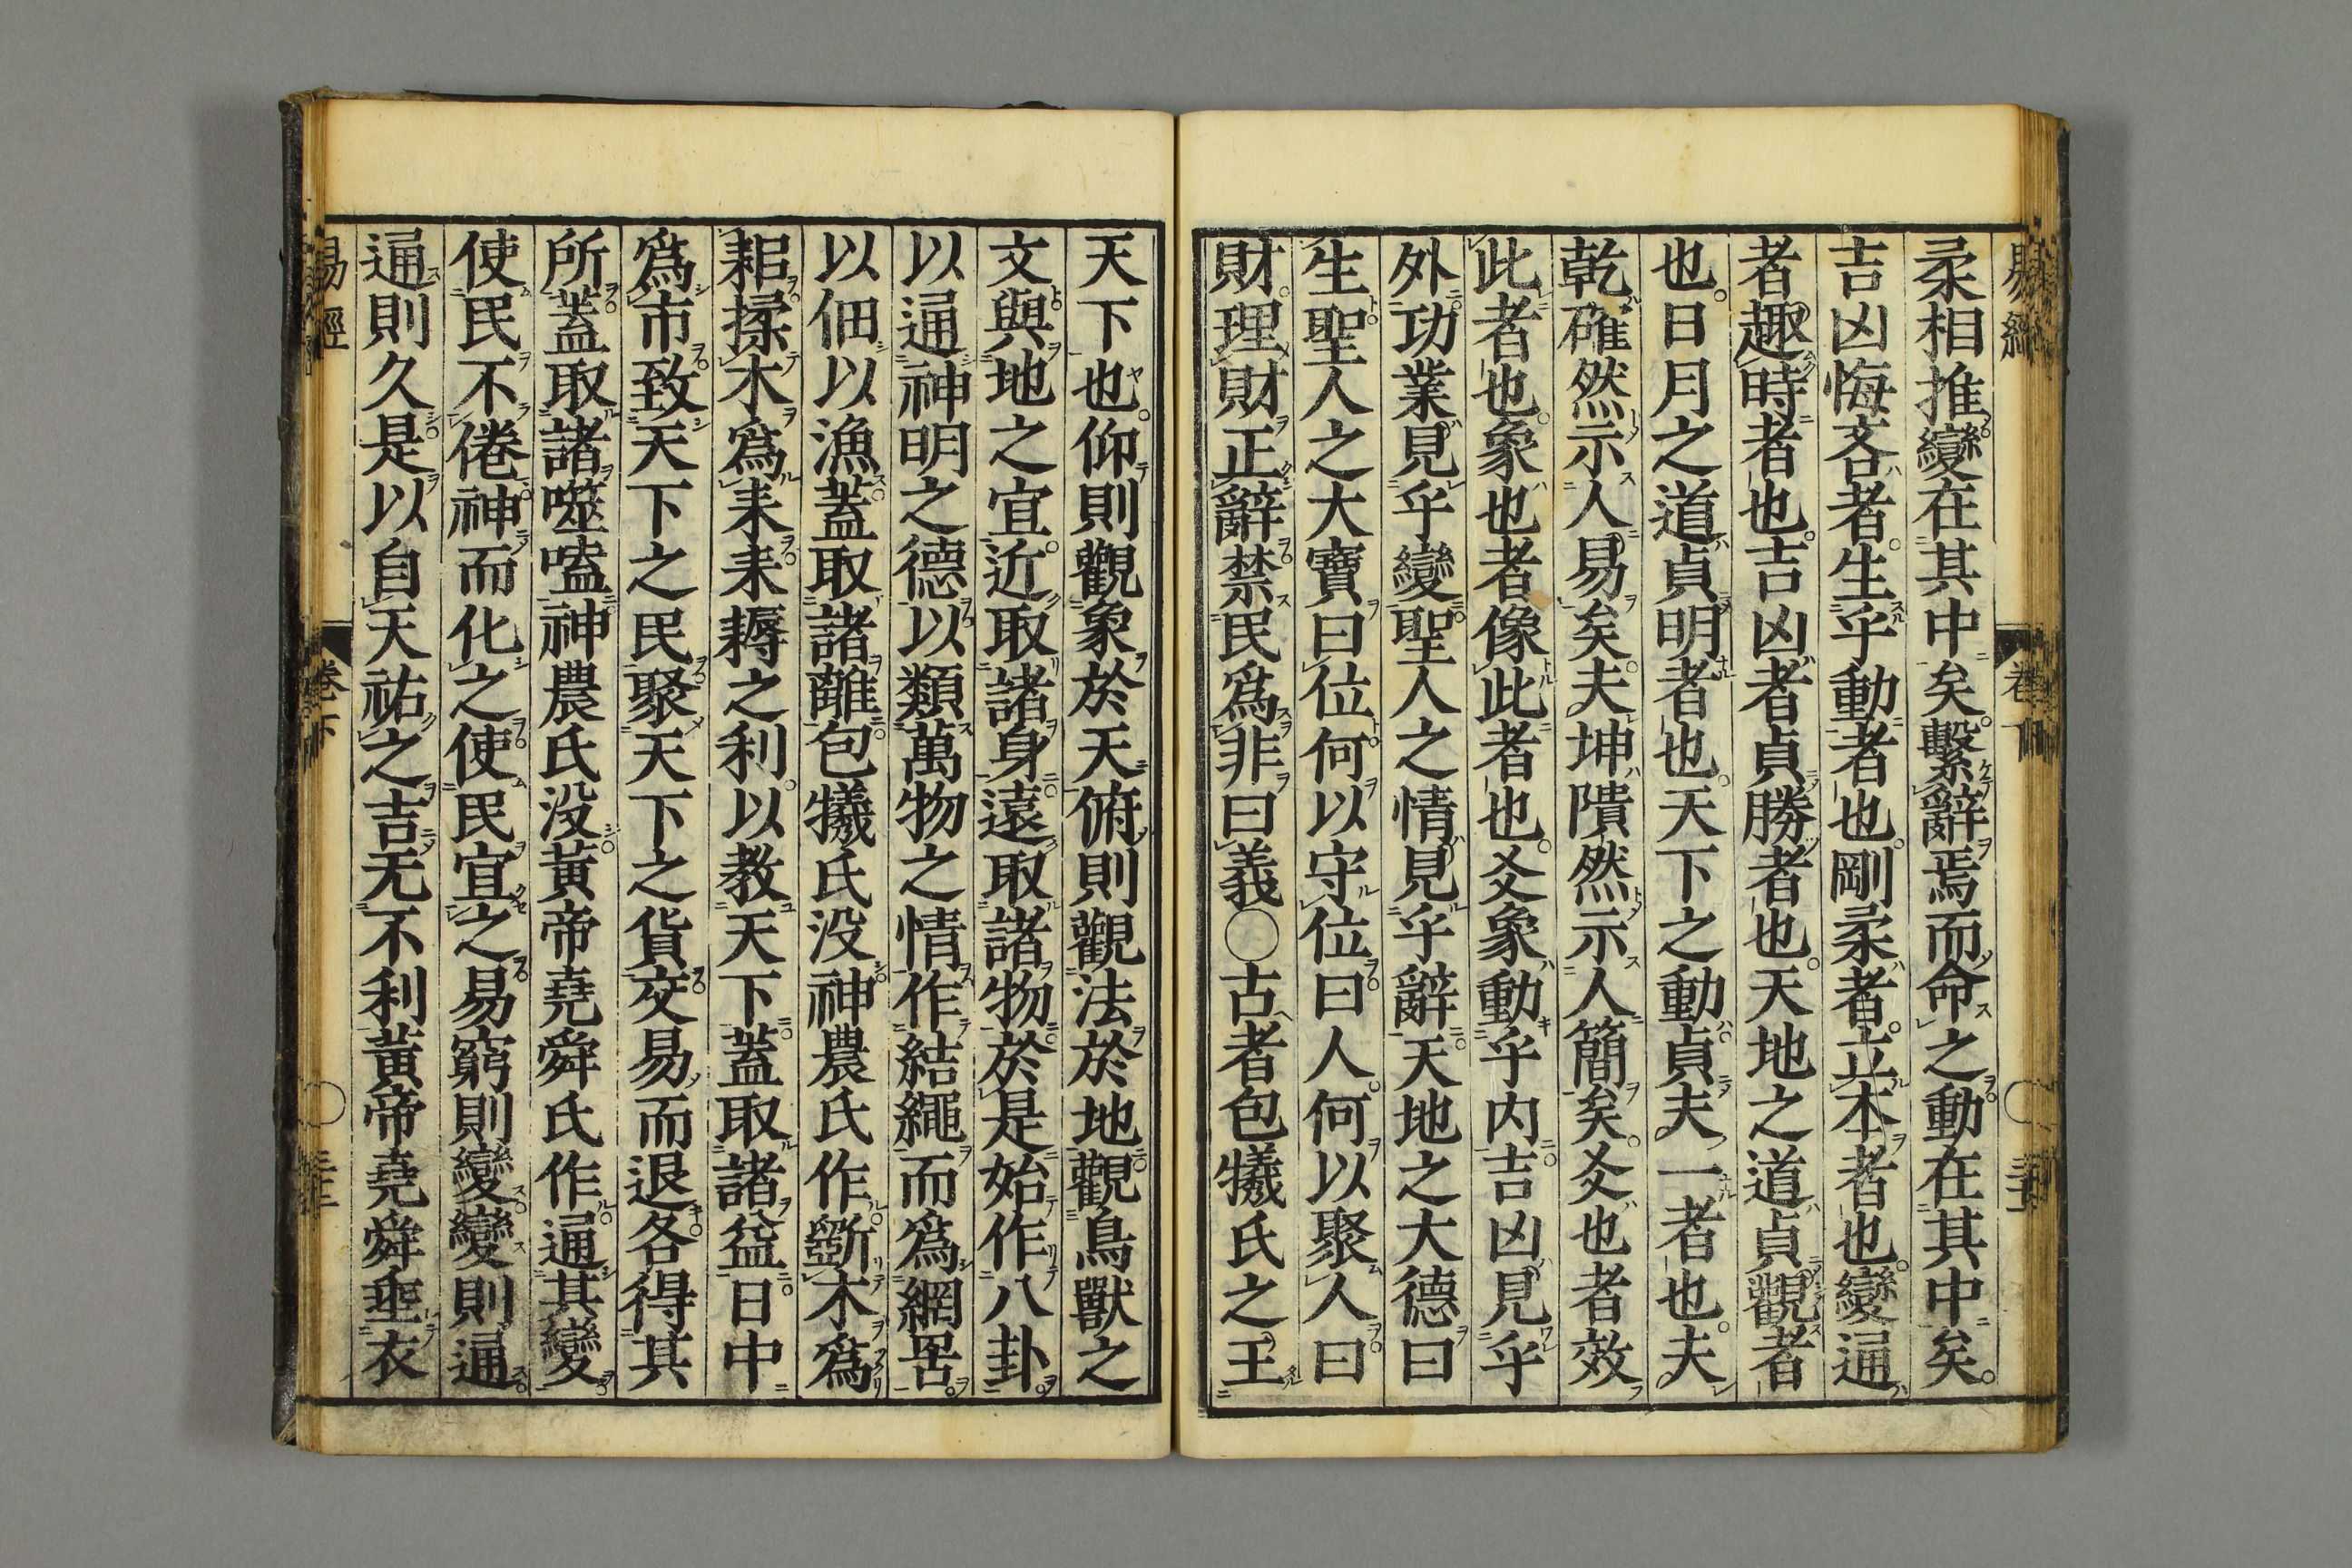 易經
卷下
柔相推變在其中矣繫辭焉而命之動在其中矣
吉凶悔吝者生乎動者也剛柔者立本者也變通
者趣時者也吉凶者貞勝者也天地之道貞觀者
也日月之道貞明者也天下之動貞夫一者也夫
乾確然示人易矣夫坤隤然示人簡矣爻也者效
此者也象也者像此者也爻象動乎内吉凶見乎
外功業見乎變聖人之情見乎辭天地之大德曰
生聖人之大寶曰位何以守位曰人何以聚人曰
財理財正辭禁民爲非曰義〇古者包犧氏之王
天下也仰則觀象於天俯則觀法於地觀鳥獸之
文與地之宜近取諸身遠取諸物於是始作八卦
以通神明之德以類萬物之情作結繩而爲網罟
以佃以漁蓋取諸離包犧氏没神農氏作斲木爲
耜揉木爲耒耒耨之利以教天下蓋取諸益日中
爲市致天下之民聚天下之貨交易而退各得其
所蓋取諸噬嗑神農氏没黃帝堯舜氏作通其變
使民不倦神而化之使民宜之易窮則變變則通
通則久是以自天祐之吉无不利黃帝堯舜垂衣
易經
卷下